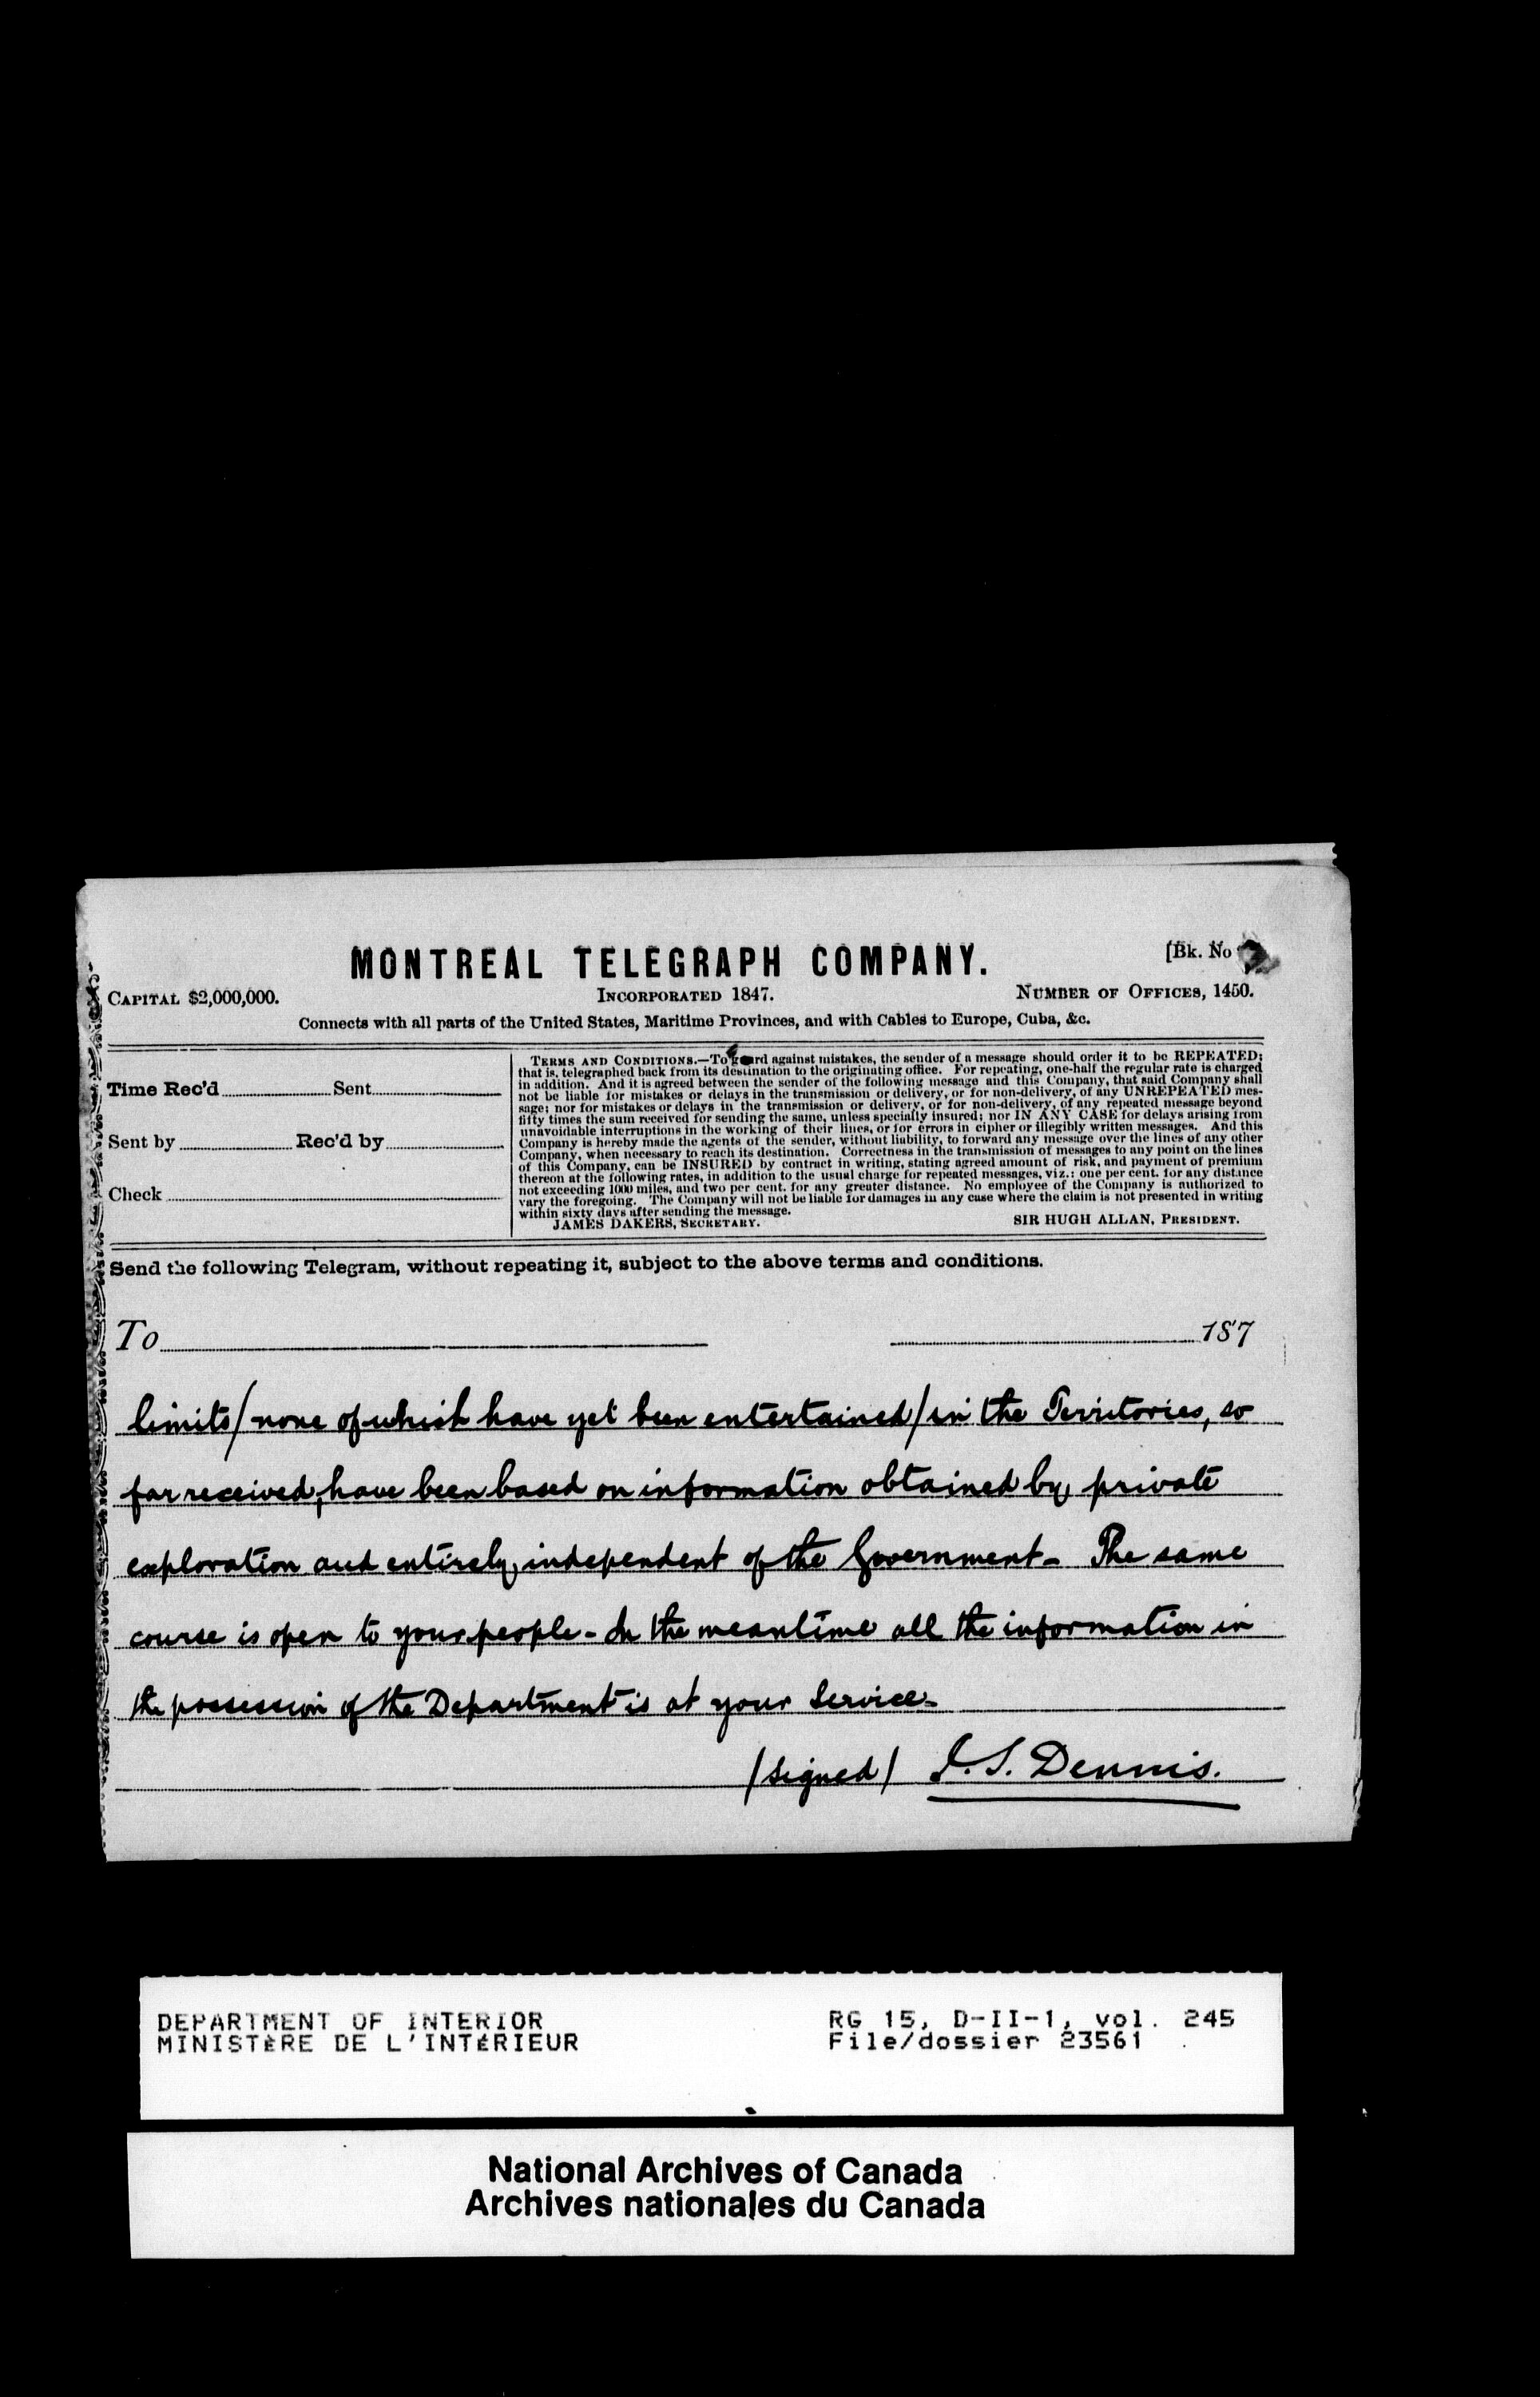 MONTREAL TELEGRAPH COMPANY.
[Bk. No
CAPITAL $2,000,000.
INCORPORATED 1847.
NUMBER OF OFFICES, 1450.
Connects with all parts of the United States, Maritime Provinces, and with Cables to Europe, Cuba, &c.
Time Rec'd Sent
Sent by Rec'd by
Check
TERMS AND CONDITIONS.—To guard against mistakes, the sender of a message should order it to be REPEATED;
that is, telegraphed back from its destination to the originating office. For repeating, one-half the regular rate is charged
in addition. And it is agreed between the sender of the following message and this Company, that said Company shall
not be liable for mistakes or delays in the transmission or delivery, or for non-delivery, of any UNREPEATED mes-
sage; nor for mistakes or delays in the transmission or delivery, or for non-delivery, of any repeated message beyond
fifty times the sum received for sending the same, unless specially insured; nor IN ANY CASE for delays arising from
unavoidable interruptions in the working of their lines, or for errors in cipher or illegibly written messages. And this
Company is hereby made the agents of the sender, without liability, to forward any message over the lines of any other
Company, when necessary to reach its destination. Correctness in the transmission of messages to any point on the lines
of this Company, can be INSURED by contract in writing, stating agreed amount of risk, and payment of premium
thereon at the following rates, in addition to the usual charge for repeated messages, viz.: one per cent. for any distance
not exceeding 1000 miles, and two per cent. for any greater distance. No employee of the Company is authorized to
vary the foregoing. The Company will not be liable for damages in any case where the claim is not presented in writing
within sixty days after sending the message.
JAMES DAKERS, SECRETARY.
SIR HUGH ALLAN, PRESIDENT.
Send the following Telegram, without repeating it, subject to the above terms and conditions.
To 187
limits/none of which have yet been entertained/in the Territories, so
far received, have been based on information obtained by private
exploration and entirely independent of the Government - The same
course is open to your people - In the meantime all the information in
the possession of the Department is at your service -
/signed/ J.S. Dennis.
DEPARTMENT OF INTERIOR
MINISTÈRE DE L'INTÉRIEUR
RG 15, D-II-1, vol. 245
File/dossier 23561
National Archives of Canada
Archives nationales du Canada